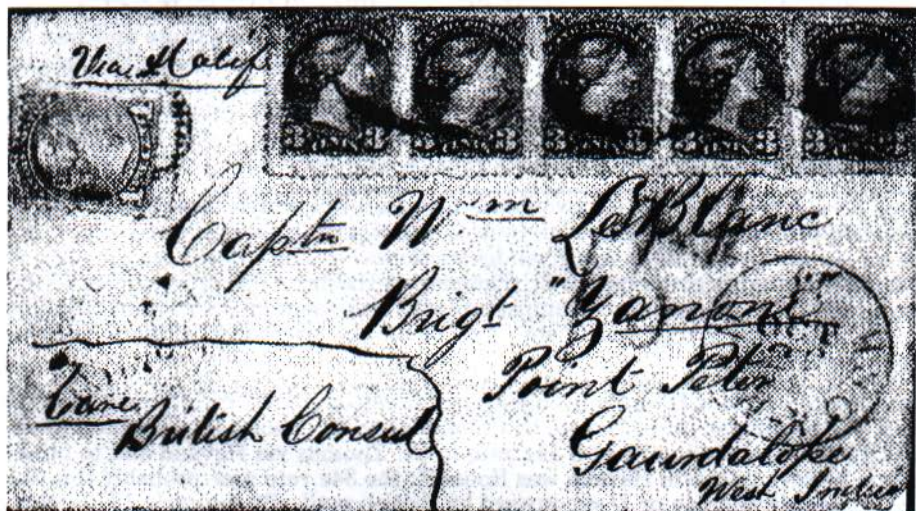 Via Halif
Captn Wm LeBlanc
Brigt "Zanoni"
Point Peter
Gaundalope
West Indies
Care
British Consul